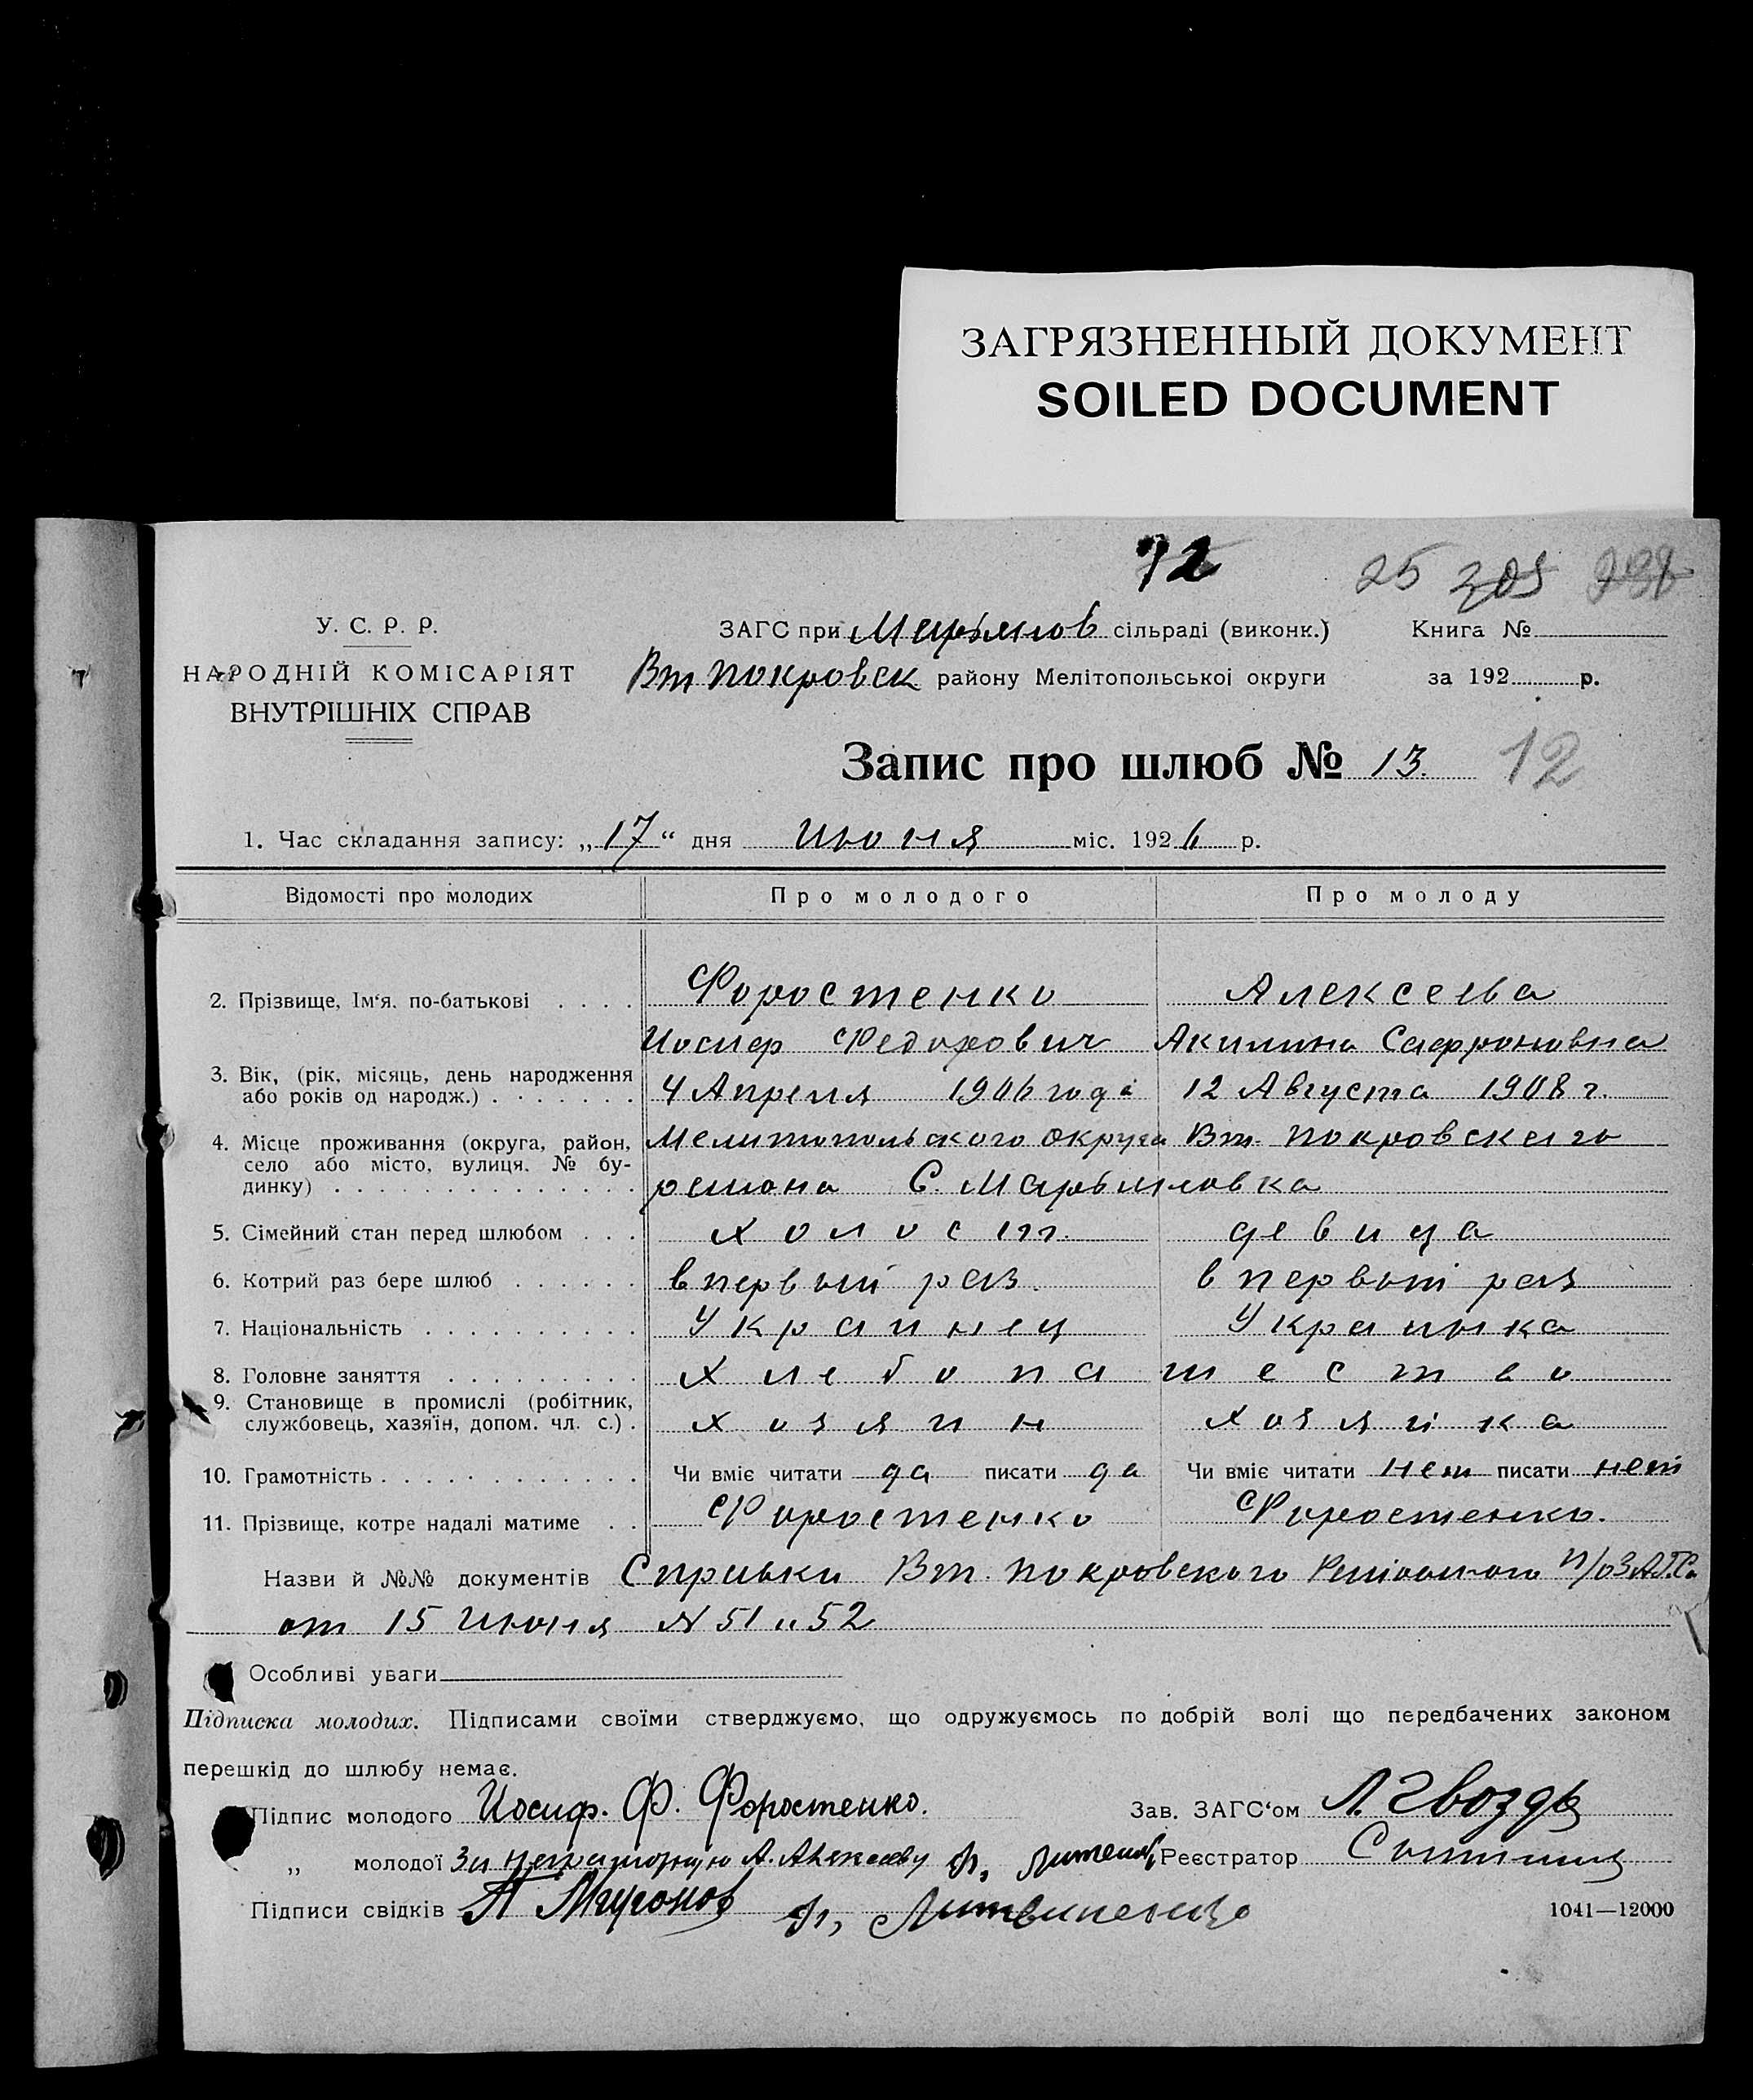 ЗАГРЯЗНЕННЫЙ ДОКУМЕНТ
SOILED DOCUMENT
12
25 205
У. С. Р. Р.
НАРОДНІЙ КОМІСАРІЯТ
ВНУТРІШНІХ СПРАВ
ЗАГС при Марьянов сільраді (виконк.) Книга №
Вт Покровск району Мелітопольської округи за 192 р.
Запис про шлюб № 13. 12
1. Час складання запису: „17“ дня Июня міс. 1926 р.
Відомості про молодих Про молодого Про молоду
2. Прізвище, Ім'я, по-батькові Форостенко Алексеева
Иосиф Федорович Акилина Сафроновна
3. Вік, (рік, місяць, день народження
або років од народж.) 4 Апреля 1906 года 12 Августа 1908 г.
4. Місце проживання (округа, район, Мелитопольского округа Вт. Покровского
село або місто, вулиця, № бу-
динку) района С. Марьяновка
5. Сімейний стан перед шлюбом холост. девица
6. Котрий раз бере шлюб впервый раз. впервый раз
7. Національність Украинец Украинка
8. Головне заняття Хлебопашество
9. Становище в промислі (робітник,
службовець, хазяїн, допом. чл. с.) хозяин хозяйка
10. Грамотність Чи вміє читати да писати да Чи вміє читати нет писати нет
11. Прізвище, котре надалі матиме Форостенко Форостенко.
Назви й №№ документів Справки Вт. Покровского Районного п/о ЗАГСа
от 15 Июня N 51 и 52
Особливі уваги
Підписка молодих. Підписами своїми стверджуємо, що одружуємось по добрій волі що передбачених законом
перешкід до шлюбу немає.
Підпис молодого Иосиф. Ф. Форостенко. Зав. ЗАГС'ом Л. Гвоздь
„ молодої За неграмотную А. Алексееву Реєстратор
Підписи свідків Литвиненко 1041—12000